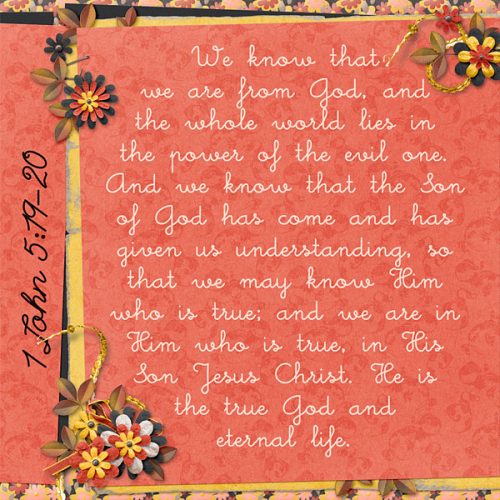 We know that
we are from God, and
the whole world lies in
the power of the evil one.
And we know that the Son
of God has come and has
given us understanding, so
that we may know Him
who is true; and we are in
Him who is true, in His
Son Jesus Christ. He is
the true God and
eternal life.
1 John 5:19-20